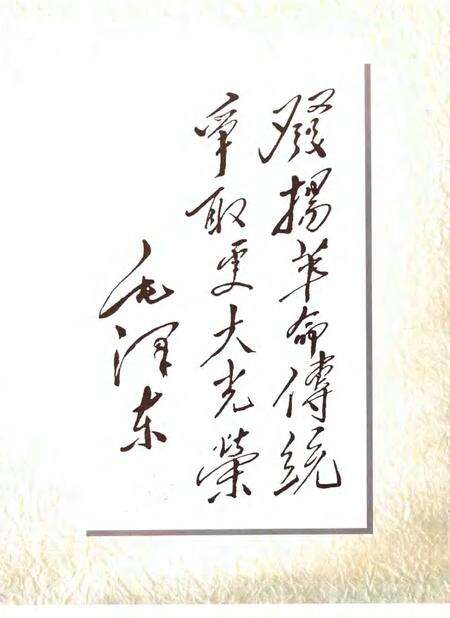 發揚革命傳統
爭取更大光榮
毛澤东